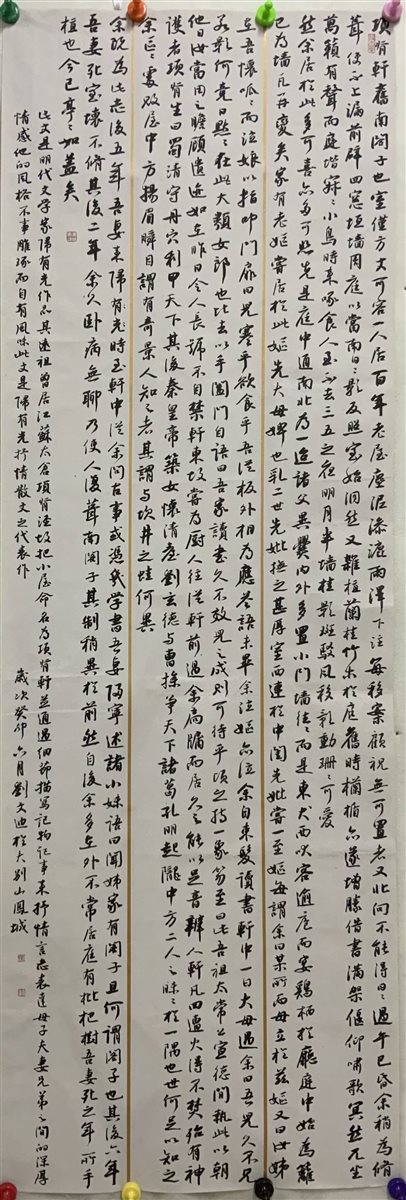 项脊軒舊南閤子也室僅方丈可容一人居百年老屋塵泥滲漉雨澤下注每移案顧視無可置者又北向不能得日日過午已昏余稍為修
葺使不上漏前辟四窗垣墙周庭以當南日日影反照室始洞然又雜植蘭桂竹木於庭舊時欄楯亦遂增勝借書滿架偃仰嘯歌冥然兀坐
萬籟有聲而庭堦寂々小鳥時來啄食人至不去三五之夜明月半墙桂影斑駁風移影動珊々可愛
然余居於此多可喜亦多可悲先是庭中通南北為一迨諸父異爨內外多置小門墙往々而是東犬西吠客逾庖而宴鷄栖於廳庭中始為籬
已為墙凡再變矣家有老嫗嘗居於此嫗先大母婢也乳二世先妣撫之甚厚室西連於中閨先妣嘗一至嫗每謂余曰某所而母立於茲嫗又曰汝姊
在吾懷呱々而泣娘以指叩門扉曰兒寒乎欲食乎吾從板外相為應答語未畢余泣嫗亦泣余自束髮讀書軒中一日大母過余曰吾兒久不見
若影何竟日默々在此大類女郎也比去以手闔門自語曰吾家讀書久不效兒之成則可待乎頃之持一象笏至曰此吾祖太常公宣德間執此以朝
他日汝當用之瞻顧遺迹如在昨日令人長號不自禁軒東故嘗為厨人往從軒前過余扃牖而居久之能以足音辨人軒凡四遭火得不焚殆有神
護者項脊生曰蜀清守丹穴利甲天下其後秦皇帝築女懷清臺劉玄德与曹操爭天下諸葛孔明起隴中方二人之昧々於一隅也世何足以知之
余區々處敗屋中方揚眉瞬目謂有奇景人知之者其謂与坎井之蛙何異
余既為此志後五年吾妻來歸時至軒中從余問古事或憑几學書吾妻歸寧述諸小妹語曰聞姊家有閤子且何謂閤子也其後六年
吾妻死室壞不修其後二年余久卧病無聊乃使人復葺南閤子其制稍異於前然自後余多在外不常居庭有枇杷樹吾妻死之年所手
植也今已亭々如蓋矣
此文是明代文學家歸有光作品其遠祖曾居江蘇太倉項脊涇故把小屋命名為項脊軒並通過細節描写記物記事来抒情言志表達母子夫妻兄弟之間的深厚
情感他的風格不事雕琢而自有風味此文是歸有光抒情散文之代表作
歲次癸卯六月劉文迪於大别山鳳城